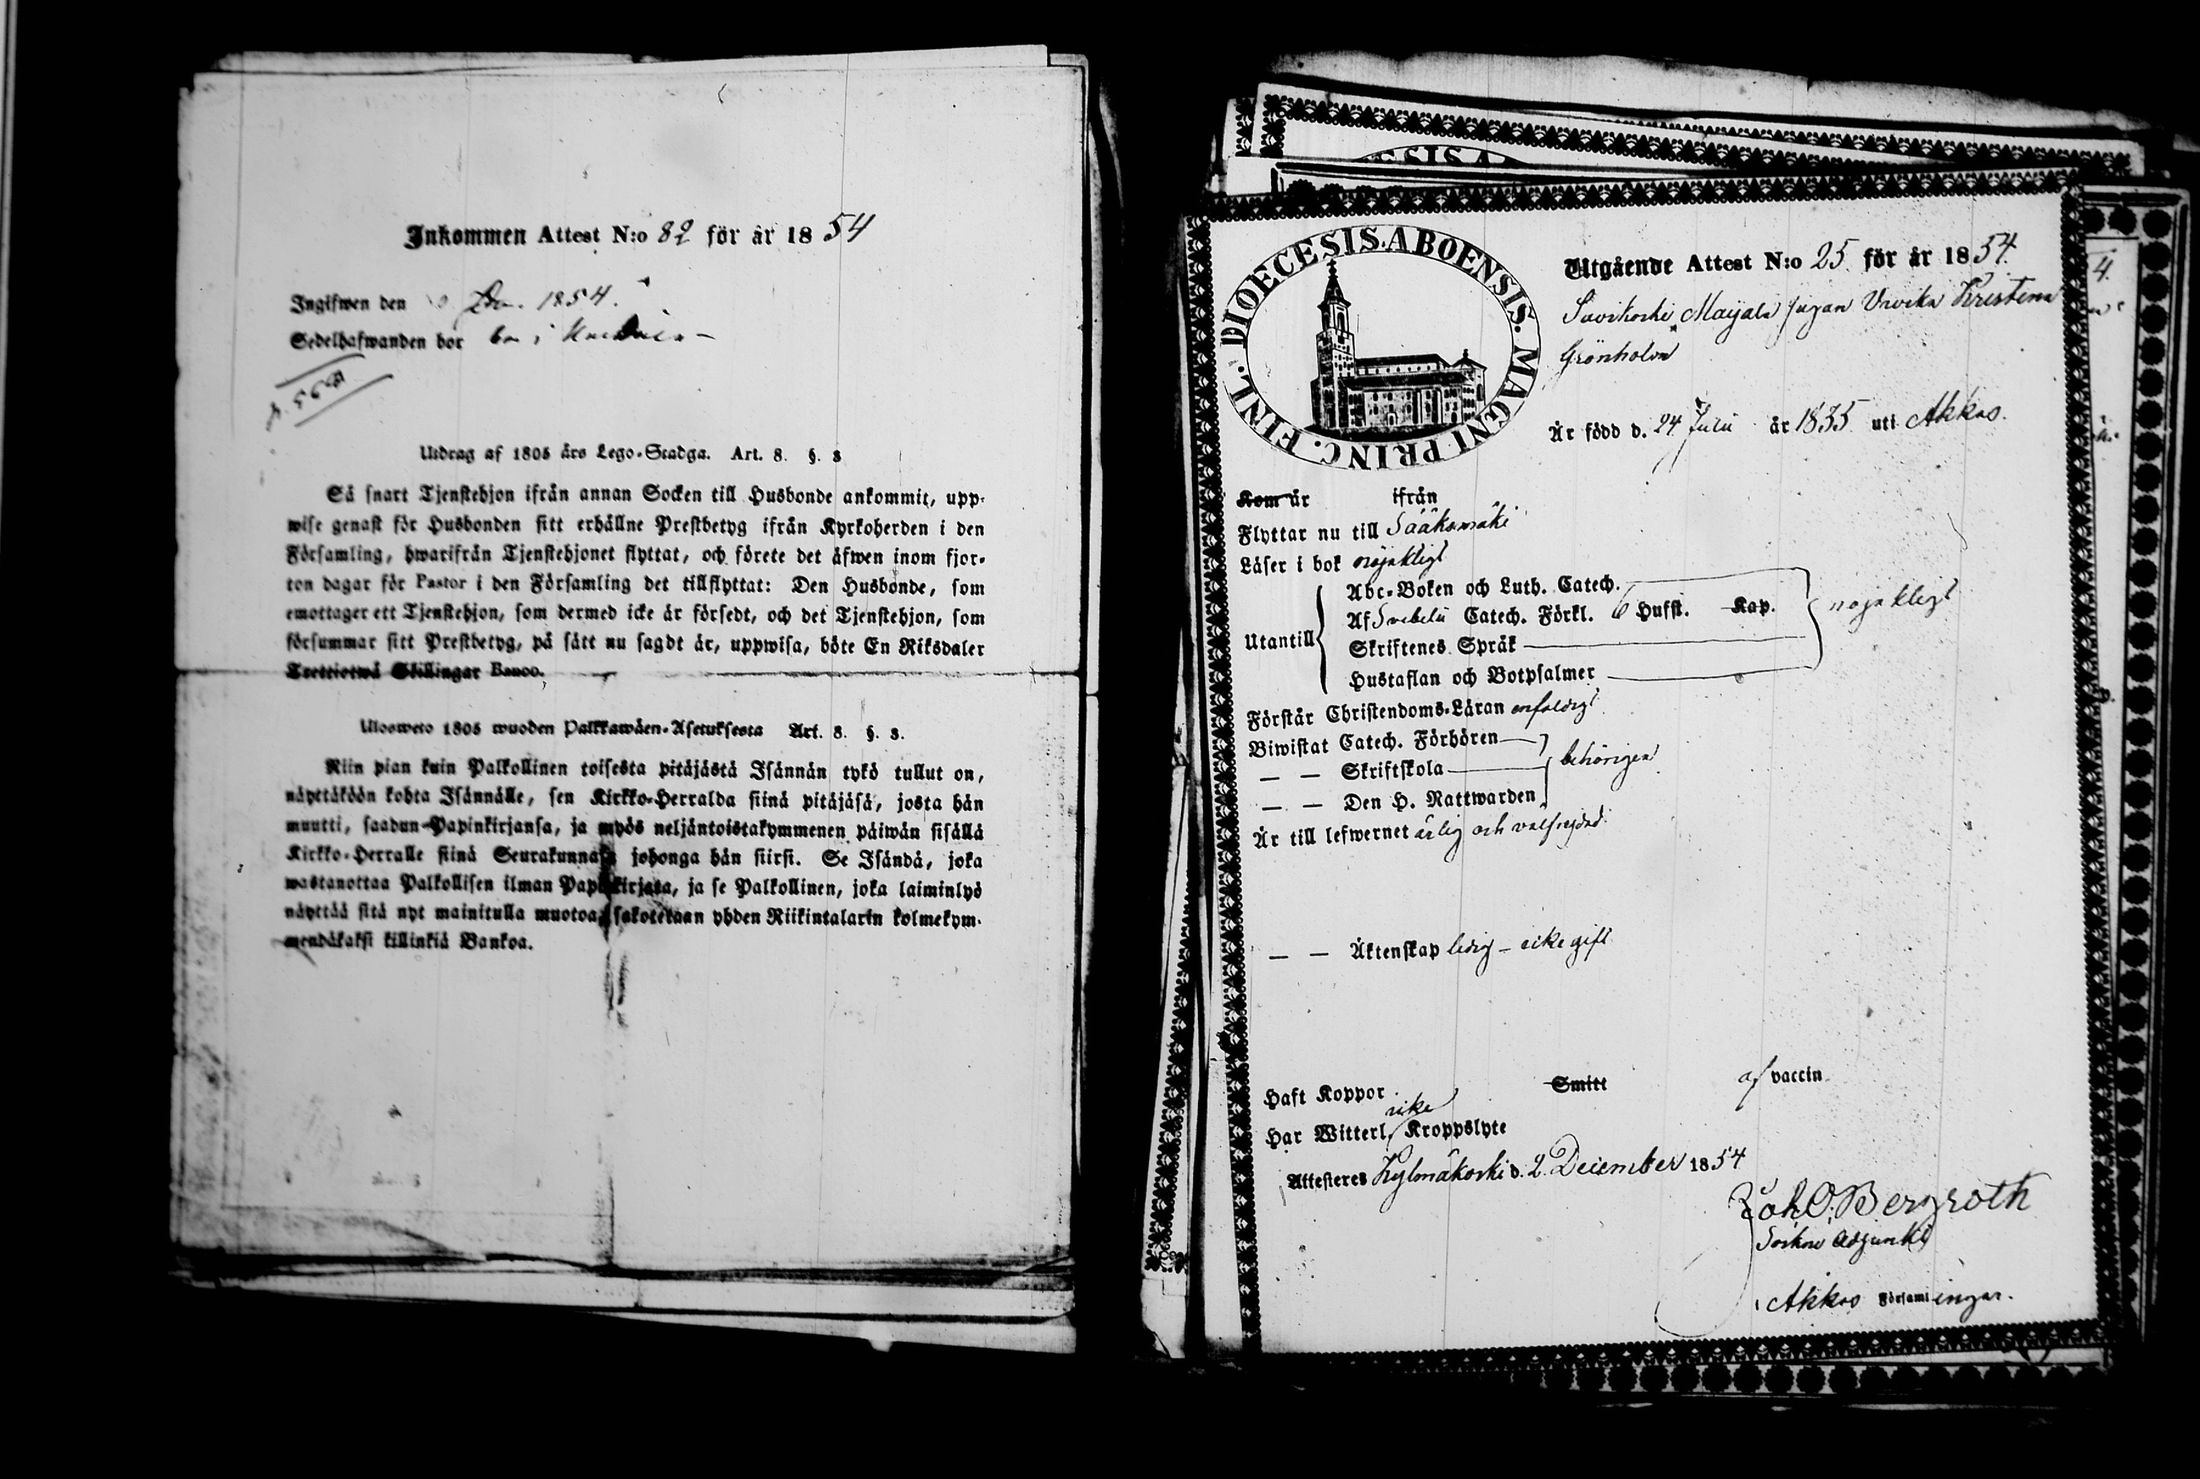 Inkommen Attest N:o 82 för år 1854
Ingifwen den 1854.
Sedelhafwanden bor i
p. 568
Utdrag af 1805 års Lego-Stadga. Art. 8. §. 3
Så snart Tjenstehjon ifrån annan Socken till Husbonde ankommit, upp-
wise genast för Husbonden sitt erhållne Prestbetyg ifrån Kyrkoherden i den
Församling, hwarifrån Tjenstehjonet flyttat, och förete det äfwen inom fjor-
ton dagar för Pastor i den Församling det tillflyttat: Den Husbonde, som
emottager ett Tjenstehjon, som dermed icke är försedt, och det Tjenstehjon, som
försummar sitt Prestbetyg, på sätt nu sagdt är, uppwisa, böte En Riksdaler
Trettiotwå Skillingar Banco.
Ulosweto 1805 wuoden Palkkawäen-Asetuksesta Art. 8. §. 3.
Niin pian kuin Palkollinen toisesta pitäjästä Isännän tykö tullut on,
näyttäköön kohta Isännälle, sen Kirkko-Herralda siinä pitäjäsä, josta hän
muutti, saadun Papinkirjansa, ja myös neljäntoistakymmenen päiwän sisällä
Kirkko-Herralle siinä Seurakunnasa johonga hän siirsi. Se Isändä, joka
wastanottaa Palkollisen ilman Papinkirjata, ja se Palkollinen, joka laiminlyö
näyttää sitä nyt mainitulla muotoa, sakotetaan yhden Riikintalarin kolmekym-
mendäkaksi killinkiä Bankoa.
DIOECESIS. ABOENSIS. MAGNI PRINC. FINL.
Utgående Attest N:o 25 för år 1854.
Savikoski Maijala pigan Ulrika Kristina
Grönholm
Är född d. 24 Julii år 1835 uti Akkas.
Kom år ifrån
Flyttar nu till Sääksmäki
Läser i bok nöjaktligt
Utantill
Abc-Boken och Luth. Catech.
Af Svebelii Catech. Förkl. 6 Hufst. Kap. nöjaktligt
Skriftenes Språk
Hustaflan och Botpsalmer
Förstår Christendoms-Läran enfaldigt
Biwistat Catech. Förhören
— — Skriftskola behörigen
— — Den H. Nattwarden
Är till lefwernet ärlig och välfrejdad.
— — Äktenskap ledig – icke gift
Haft Koppor Smitt af vaccin
icke
Har Witterl. Kroppslyte
Attesteras Kylmäkoski d. 2 December 1854
Joh. O. Bergroth
Sockne Adjunkt
i Akkas Församlingar.